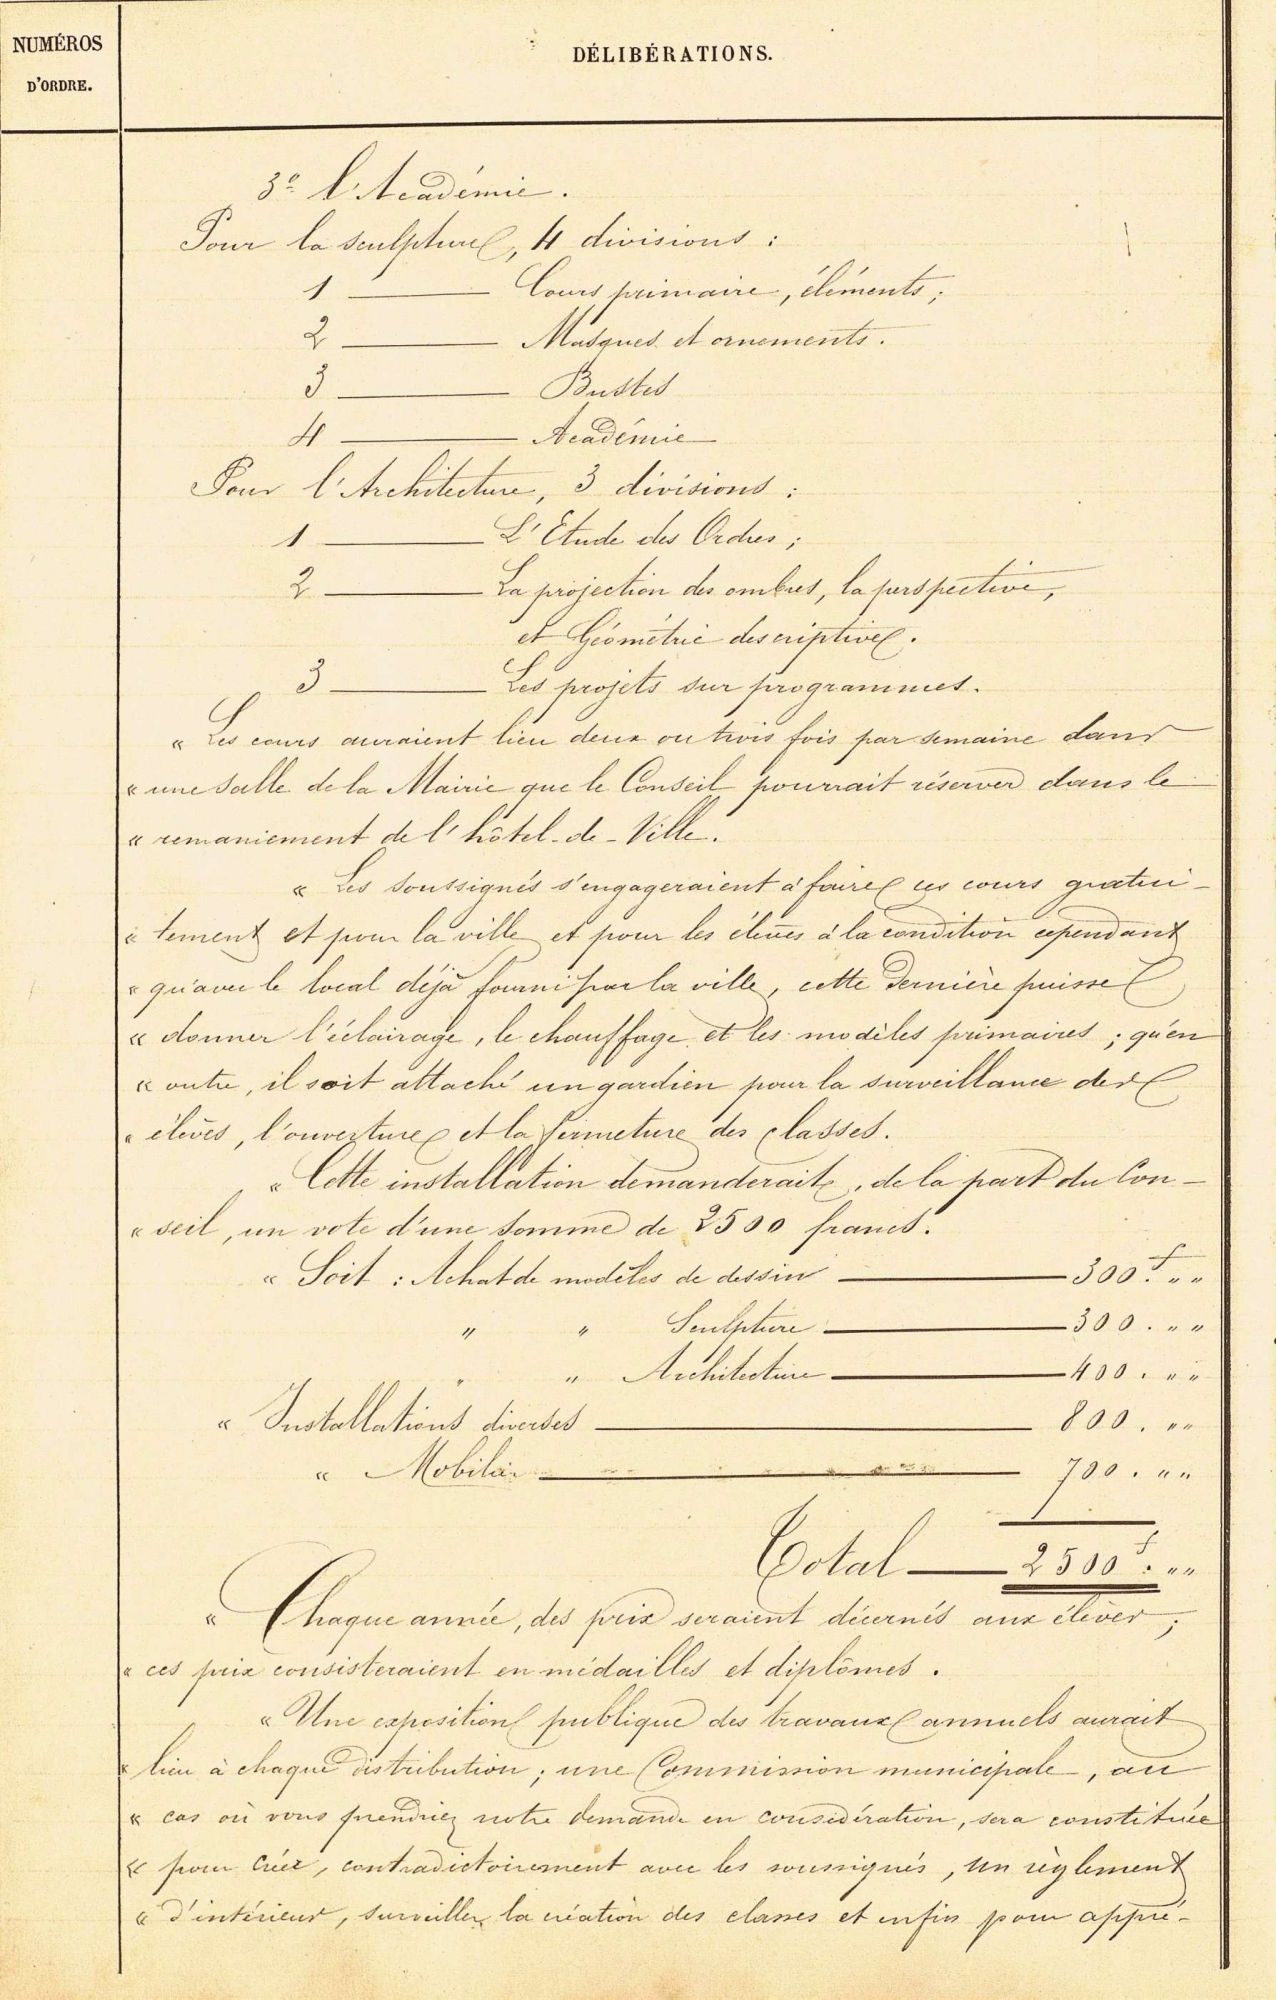 NUMÉROS
D'ORDRE.
DÉLIBÉRATIONS.
3º l'Académie.
Pour la sculpture, 4 divisions :
1 ——— Cours primaire, éléments ;
2 ——— Masques et ornements.
3 ——— Bustes
4 ——— Académie
Pour l'Architecture, 3 divisions :
1 ——— L'Etude des Ordres ;
2 ——— La projection des ombres, la perspective,
et Géométrie descriptive.
3 ——— Les projets sur programmes.
« Les cours auraient lieu deux ou trois fois par semaine dans
« une salle de la Mairie que le Conseil pourrait réserver dans le
« remaniement de l'hôtel-de-Ville.
« Les soussignés s'engageraient à faire ces cours gratui-
« tement et pour la ville et pour les élèves à la condition cependant
« qu'avec le local déjà fourni par la ville, cette dernière puisse
« donner l'éclairage, le chauffage et les modèles primaires ; qu'en
« outre, il soit attaché un gardien pour la surveillance des
« élèves, l'ouverture et la fermeture des classes.
« Cette installation demanderait, de la part du Con-
« seil, un vote d'une somme de 2500 francs.
« Soit : Achat de modèles de dessin ——— 300 f. „ „
„ „ Sculpture ——— 300. „ „
„ „ Architecture ——— 400. „ „
« Installations diverses ——— 800. „ „
« Mobilier ——— 700. „ „
Total ——— 2500 f. „ „
« Chaque année, des prix seraient décernés aux élèves ;
« ces prix consisteraient en médailles et diplômes.
« Une exposition publique des travaux annuels aurait
« lieu à chaque distribution ; une Commission municipale, au
« cas où vous prendriez notre demande en considération, sera constituée
« pour créer, contradictoirement avec les soussignés, un règlement
« d'intérieur, surveiller la création des classes et enfin pour appré-